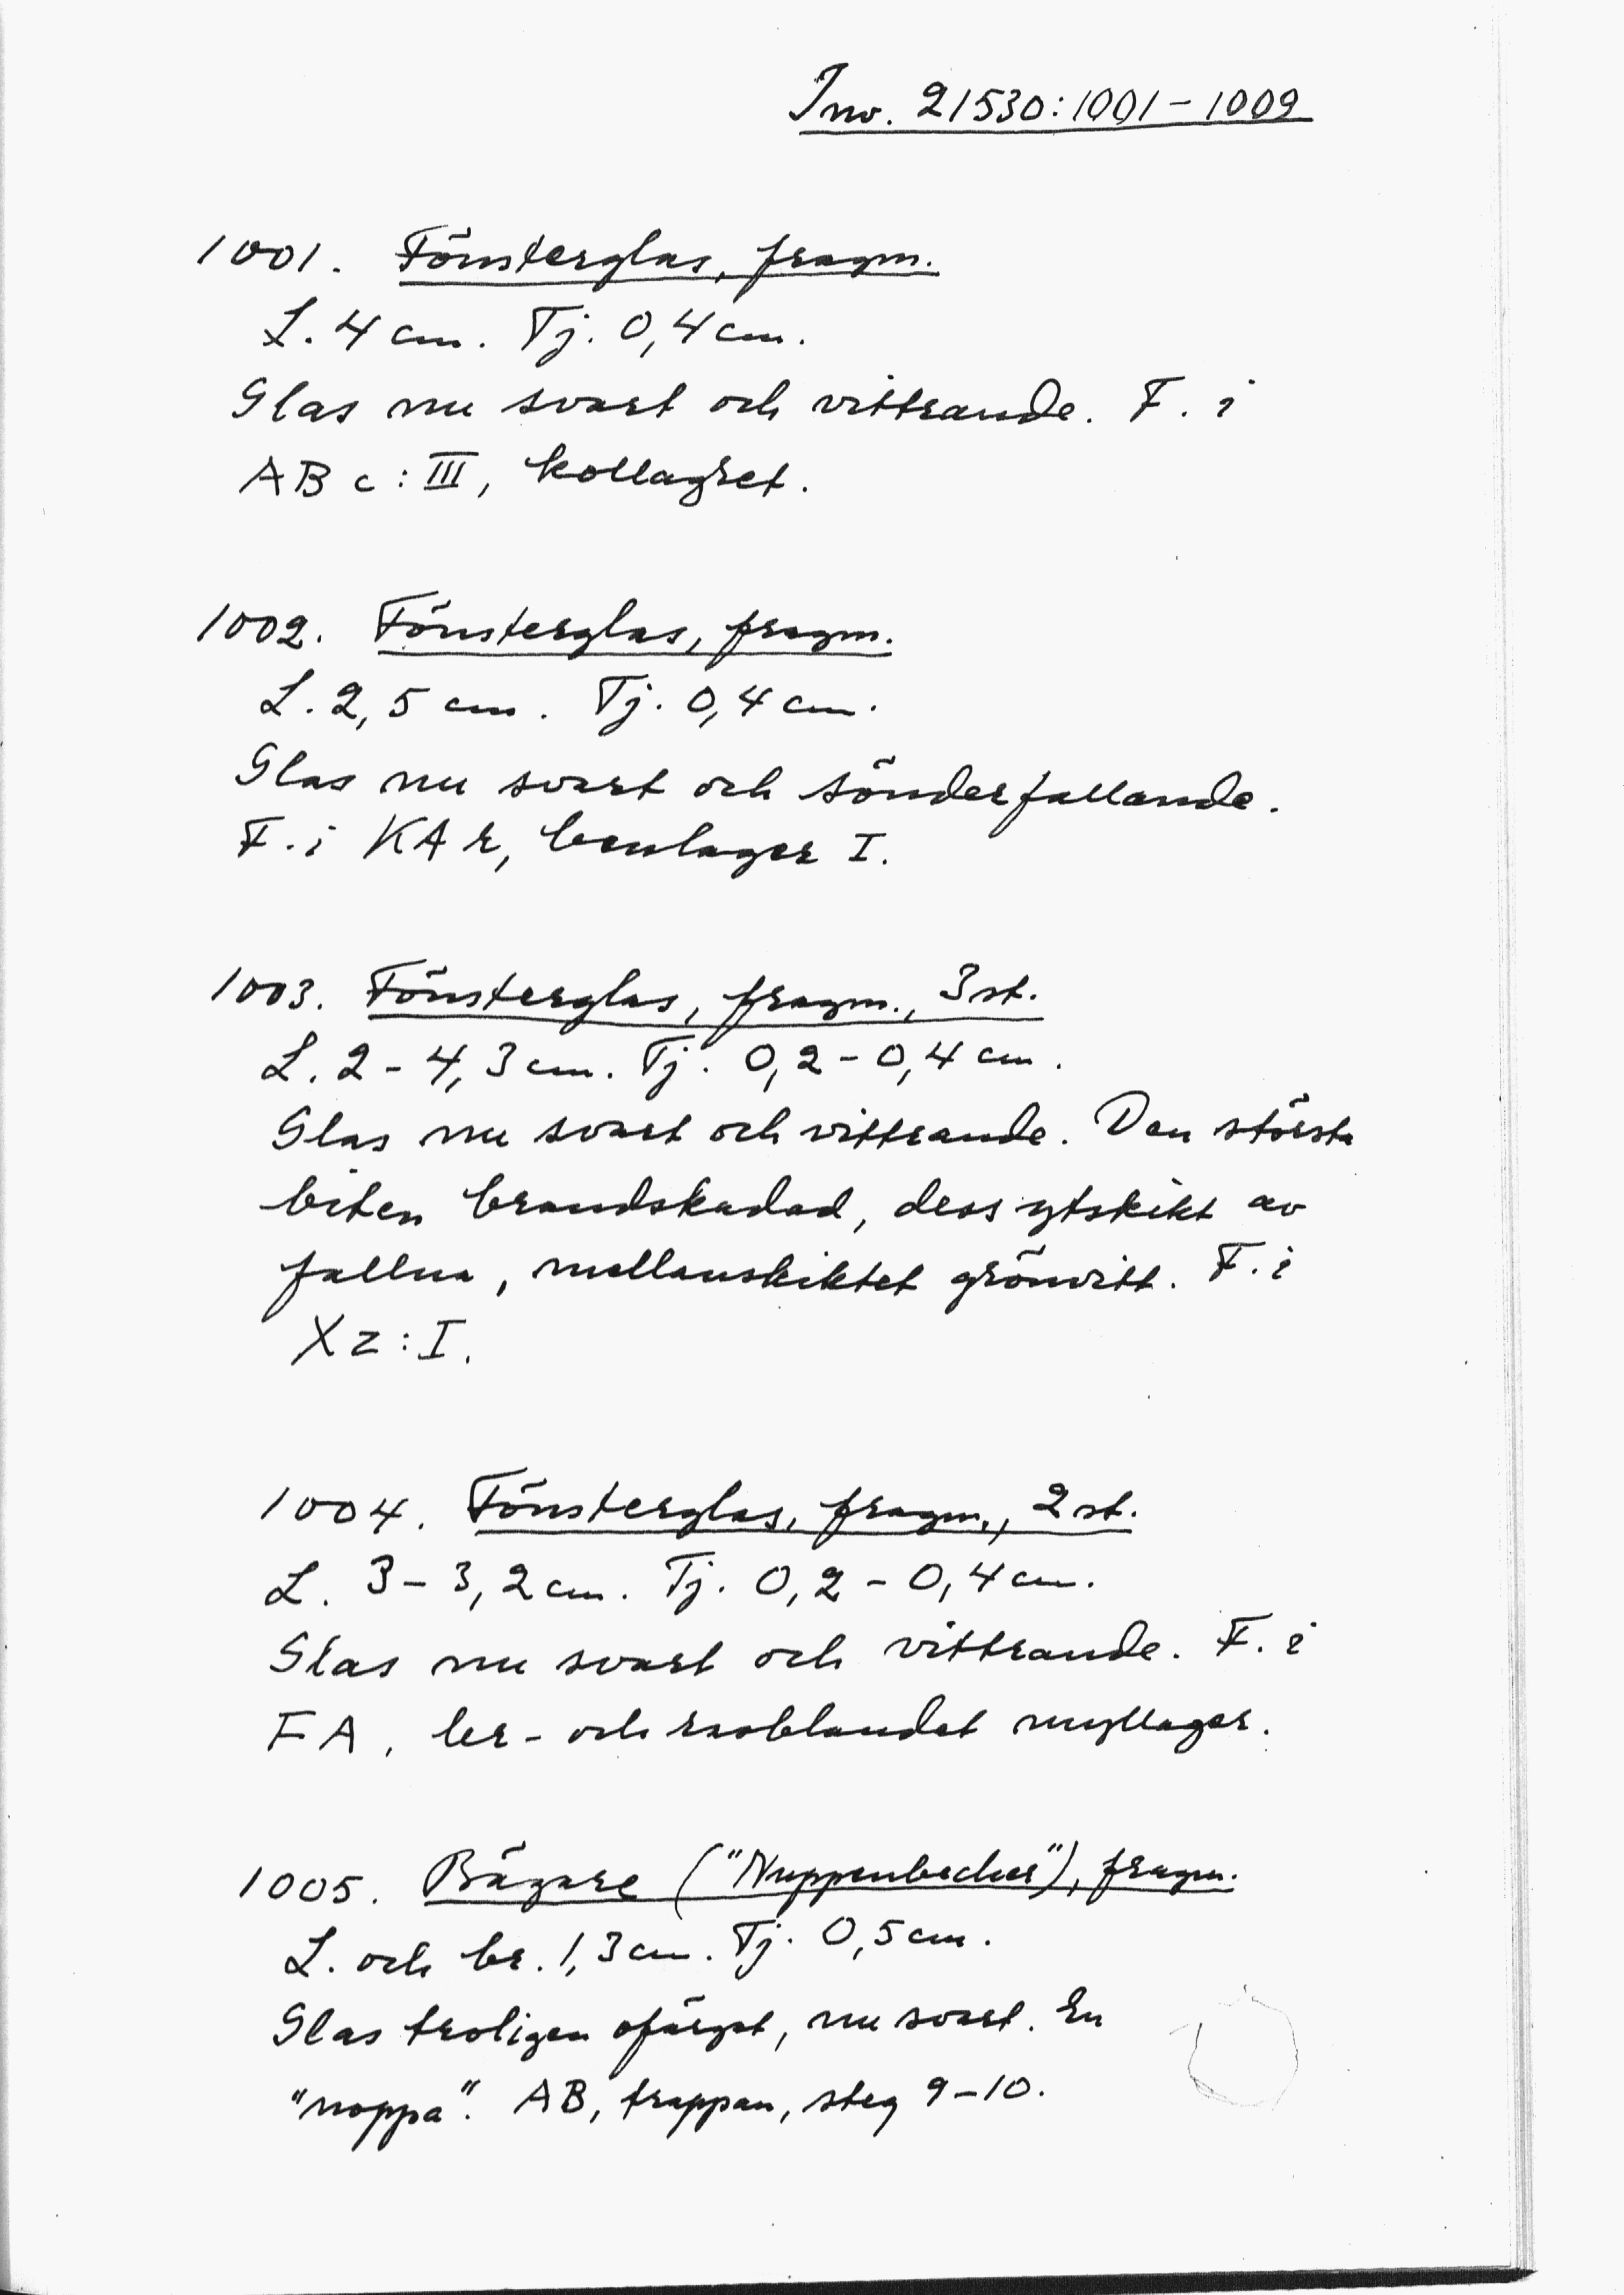 Inv. 21530:1001-1009
1001. Fönsterglas, fragm.
L. 4 cm. Tj. 0,4 cm.
Glas nu svart och vittrande. F. i
AB c: III, kollagret.
1002. Fönsterglas, fragm.
L. 2,5 cm. Tj. 0,4 cm.
Glas nu svart och sönderfallande.
F. i KA r, benlager I.
1003. Fönsterglas, fragm., 3 st.
L. 2-4,3 cm. Tj. 0,2-0,4 cm.
Glas nu svart och vittrande. Den största
biten brandskadad, dess ytskikt av
fallna, mellanskiktet grönvitt. F. i
X z: I.
1004. Fönsterglas, fragm., 2 st.
L. 3-3,2 cm. Tj. 0,2-0,4 cm.
Glas nu svart och vittrande. F. i
FA, ler- och rasblandat myllager.
1005. Bägare ("Nuppenbecher"), fragm.
L. och br. 1,3 cm. Tj. 0,5 cm.
Glas troligen ofärgat, nu svart. En
"noppa". AB, trappan, steg 9-10.